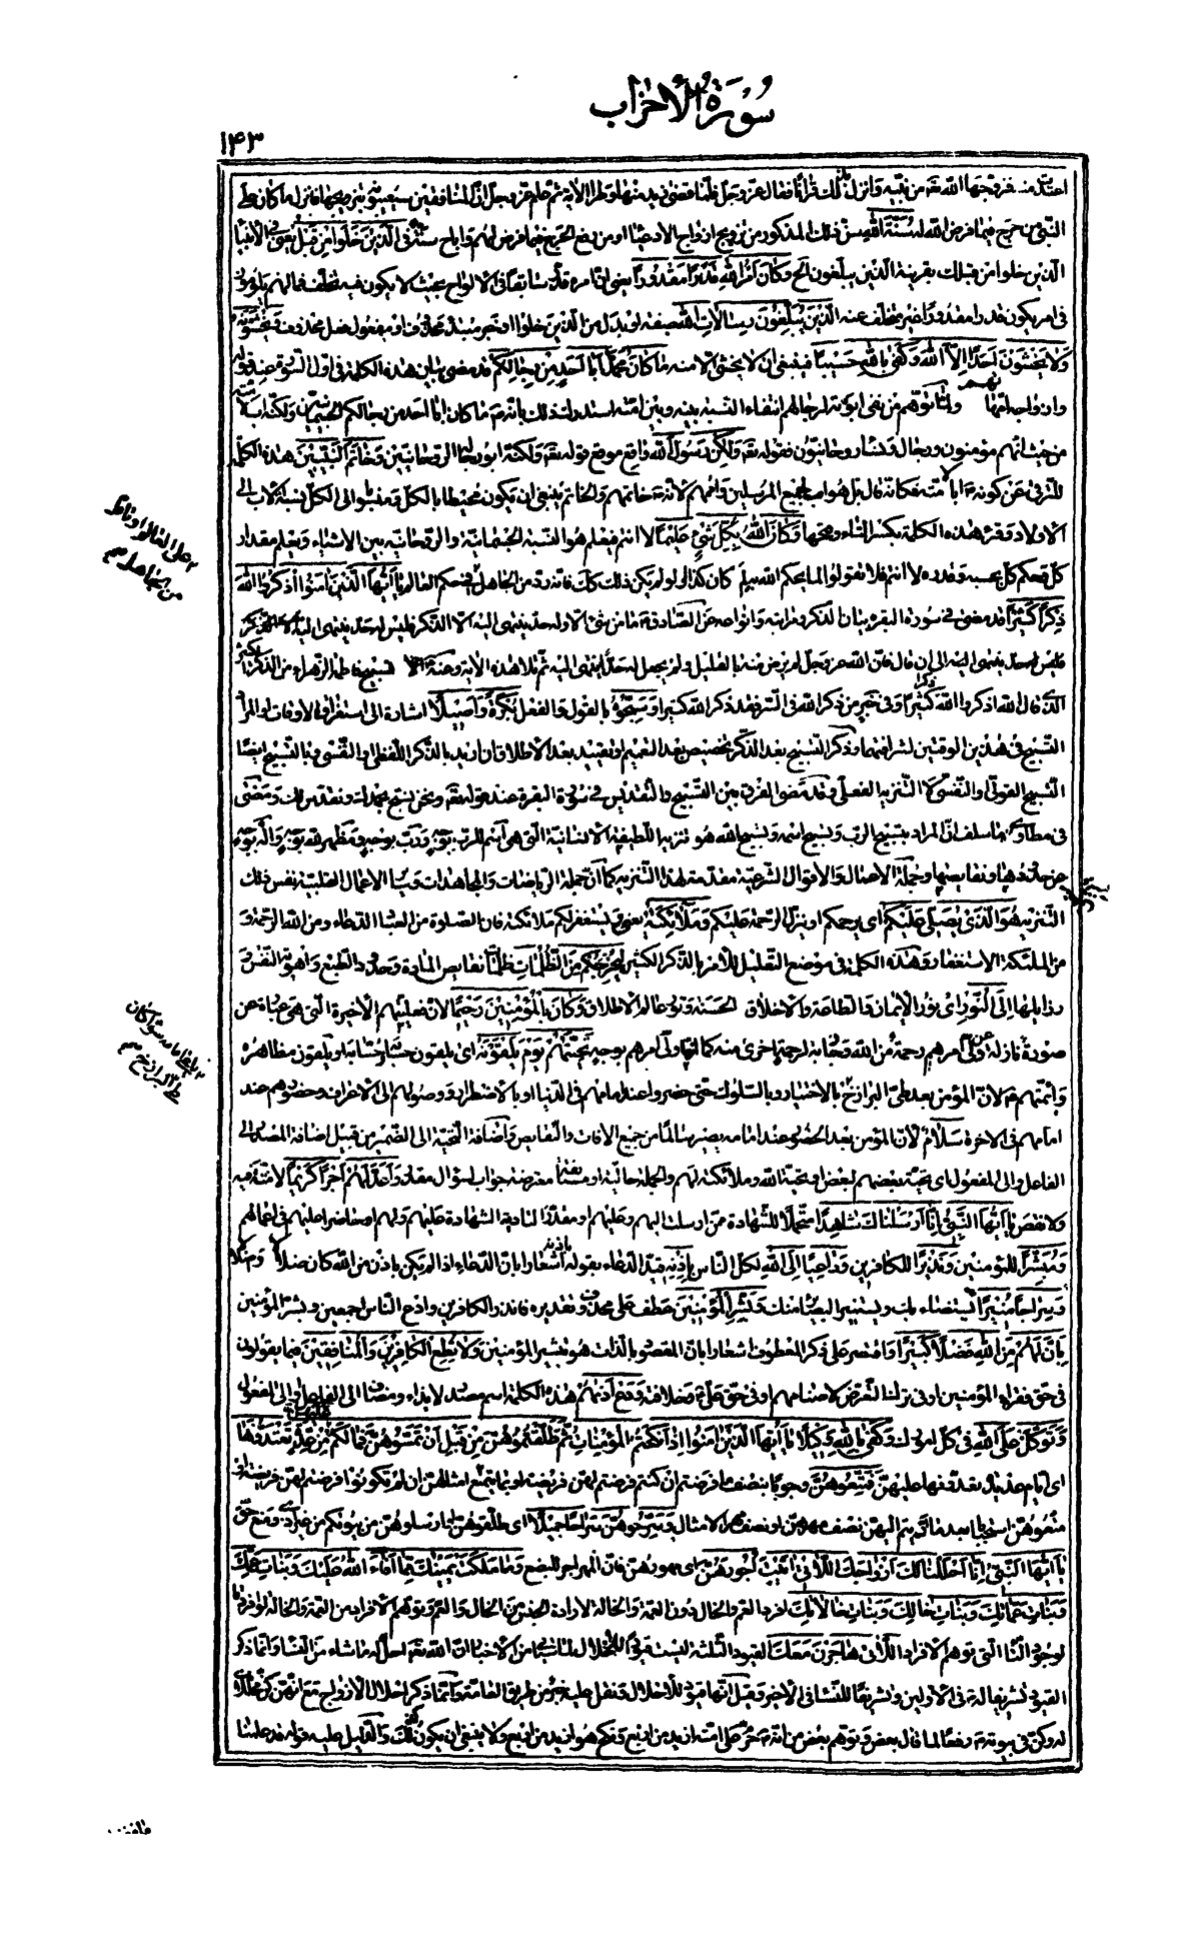 سُوْرَةُ الْأَحْزَاب
١٤٣
اعتدّت منه فزوّجها الله تعالى من نبيّه وانزل بذلك قرآنا فقال عزّ وجلّ فلمّا قضى زيد منها وطرا الآية ثمّ علم عزّ وجلّ انّ المنافقين سيعيبونه بتزويجها فانزل ما كان على
النّبىّ من حرج فيما فرض الله له سُنَّةَ اللهِ سنّ ذلك المذكور من تزويج ازواج الأدعياء او من رفع الحرج فيما فرض لهم واباح سنّته فِى الَّذِينَ خَلَوْا مِنْ قَبْلُ يعنى فى الأنبياء
الّذين خلوا من قبلك بقرينة الّذين يبلّغون الخ وَكَانَ أَمْرُ اللهِ قَدَرًا مَقْدُورًا يعنى انّ امره قدّر سابقًا فى الألواح بحيث لا يكون فيه تخلّف فما لهم يلومون
فى امر يكون قدرا مقدورًا غير متخلّف عنه الَّذِينَ يُبَلِّغُونَ رِسَالَاتِ اللهِ صفة او بدل من الّذين خلوا او خبر مبتدء محذوف او مفعول فعل محذوف وَيَخْشَوْنَهُ
وَلَا يَخْشَوْنَ أَحَدًا إِلَّا اللهَ وَكَفَى بِاللهِ حَسِيبًا فينبغى ان لا يخشى الّا منه مَا كَانَ مُحَمَّدٌ أَبَا أَحَدٍ مِنْ رِجَالِكُمْ قد مضى بيان هذه الكلمة فى اوّل السّورة عند قوله
وازواجه امّهاتهم ولمّا توهّم من نفى ابوّته لرجالهم انتفاء النّسبة بينه وبين امّته استدرك ذلك بانّه ما كان ابا احد من رجالكم الجسمانيّين ولكنّه اب لامّته
من حيث انّهم مؤمنون ورجال ونساء روحانيّون فقوله تعالى وَلَكِنْ رَسُولَ اللهِ واقع موقع قوله تعالى ولكنّه ابو رجاله الروحانيّين وَخَاتَمَ النَّبِيِّينَ هذه الكلمة
للتّرقّى عن كونه ابا امّته فكانّه قال بل هو اب لجميع المرسلين واممهم لانّه خاتمهم والخاتم ينبغى ان يكون محيطا بالكلّ ومنسوبا الى الكلّ نسبة الأب الى
الأولاد وقرئ هذه الكلمة بكسر التّاء وفتحها وَكَانَ اللهُ بِكُلِّ شَىْءٍ عَلِيمًا لا انتم فيعلم هو النّسبة الجسمانيّة والرّوحانيّة بين الأشياء ويعلم مقدار
كلّ وحكم كلّ بحسبه وقدره لا انتم فلا تقولوا لما يحكم الله به لم كان كذا ولو لم يكن ذلك كذلك فانّه ردّ من الجاهل فى حكم العالم يَا أَيُّهَا الَّذِينَ آمَنُوا اذْكُرُوا اللهَ
ذِكْرًا كَثِيرًا قد مضى فى سورة البقرة بيان للذّكر ومراتبه وانواعه عن الصّادق ما من شىء الّا وله حدّ ينتهى اليه الّا الذّكر فليس له حدّ ينتهى اليه
فليس له حدّ ينتهى اليه الى ان قال فانّ الله عزّ وجلّ لم يرض منه بالقليل ولم يجعل له حدًّا ينتهى اليه ثمّ تلا هذه الآية وعنه تسبيح فاطمة الزّهراء من الذّكر الكثير
الّذى قال الله اذكروا الله ذكرا كثيرًا وفى خبر من ذكر الله فى السّرّ فقد ذكر الله كثيرا وَسَبِّحُوهُ بالقول والفعل بُكْرَةً وَأَصِيلًا اشارة الى استغراق الأوقات او المراد
التّسبيح فى هذين الوقتين لشرافتهما وذكر التّسبيح بعد الذّكر تخصيص بعد التّعميم وتقييد بعد الاطلاق ان اريد بالذّكر اللّفظىّ والنّفسىّ وبالتّسبيح ايضًا
التّسبيح القولىّ والنّفسىّ لا التّنزيه الفعلىّ وقد مضى الفرق بين التّسبيح والتّقديس فى سورة البقرة عند قوله تعالى ونحن نسبّح بحمدك ونقدّس لك ومضى
فى مطاوى ما سلف انّ المراد بتسبيح الرّب وتسبيح اسمه وتسبيح الله هو تنزيه اللّطيفة الإنسانيّة الّتى هى اسم للرّبّ بوجهٍ وربّ بوجهٍ ومظهر لله بوجه وآله بوجه
عن حدودها ونقائصها وجملة الأعمال والأقوال الشّرعيّة مقدّمة لهذا التّنزيه كما انّ جملة الرّياضات والمجاهدات وسائر الأعمال القلبيّة نفس ذلك
التّنزيه هُوَ الَّذِى يُصَلِّى عَلَيْكُمْ اى يرحمكم او ينزل الرّحمة عليكم وَمَلَائِكَتُهُ يعنى يستغفر لكم ملائكته فانّ الصّلوة من العباد الدّعاء ومن الله الرّحمة و
من الملئكة الاستغفار وهذه الكلمة فى موضع التّعليل للأمر بالذّكر الكثير لِيُخْرِجَكُمْ مِنَ الظُّلُمَاتِ ظلمات نقائص المادّة وحدود الطّبع واهوية النّفس و
رذايلها إِلَى النُّورِ اى نور الايمان والطّاعة والأخلاق الحسنة ونور عالم الاطلاق وَكَانَ بِالْمُؤْمِنِينَ رَحِيمًا لانّ فعليّتهم الأخيرة الّتى هى عبارة عن
صورة نازلة عن ولىّ امرهم رحمة من الله وجاذبة لرحمة اخرى منه كما انّها ولىّ امرهم بوجه تَحِيَّتُهُمْ يَوْمَ يَلْقَوْنَهُ اى يلقون حسابه او يلقون مظاهره
وائمّتهم لانّ المؤمن بعد طىّ البرازخ بالاختيار وبالسّلوك حتّى حضروا عند امامهم فى الدّنيا او بالاضطرار ووصولهم الى الأعراف وحضورهم عند
امامهم فى الآخرة سَلَامٌ لانّ المؤمن بعد الحضور عند امامه يصير سالمًا من جميع الآفات والنّقايص واضافة التّحيّة الى الضّمير من قبيل اضافة المصدر الى
الفاعل والى المفعول اى تحيّة بعضهم لبعض او تحيّة الله وملائكته لهم والجملة حاليّة او مستأنفة معترضة جواب لسؤال مقدّر وَأَعَدَّ لَهُمْ أَجْرًا كَرِيمًا لا منّة فيه
ولا نقص يَا أَيُّهَا النَّبِىُّ إِنَّا أَرْسَلْنَاكَ شَاهِدًا متحمّلًا للشّهادة ممّن ارسلت اليهم وعليهم او مقدّرا لتأدية الشّهادة عليهم ولهم او حاضرا عليهم فى اعمالهم
وَمُبَشِّرًا للمؤمنين وَنَذِيرًا للكافرين وَدَاعِيًا إِلَى اللهِ لكلّ النّاس بِإِذْنِهِ قيّد الدّعاء بقوله باذنه اشعارا بانّ الدّعاء اذا لم يكن باذن من الله كان ضلالا واضلالا
وَسِرَاجًا مُنِيرًا يستضاء بك ويستنير البصائر منك وَبَشِّرِ الْمُؤْمِنِينَ عطف على محذوف وتقديره فانذر الكافرين وادع النّاس اجمعين وبشّر المؤمنين
بِأَنَّ لَهُمْ مِنَ اللهِ فَضْلًا كَبِيرًا واقتصر على ذكر المعطوف اشعارا بانّ المقصود بالذّات هو تبشير المؤمنين وَلَا تُطِعِ الْكَافِرِينَ وَالْمُنَافِقِينَ فيما يقولون
فى حقّ فقراء المؤمنين او فى ترك التّعرّض لاصنامهم او فى حقّ علىّ وخلافته وَدَعْ أَذَاهُمْ هذه الكلمة اسم مصدر لا يذاء ومضاف الى الفاعل او الى المفعول
وَتَوَكَّلْ عَلَى اللهِ فى كلّ امورك وَكَفَى بِاللهِ وَكِيلًا يَا أَيُّهَا الَّذِينَ آمَنُوا إِذَا نَكَحْتُمُ الْمُؤْمِنَاتِ ثُمَّ طَلَّقْتُمُوهُنَّ مِنْ قَبْلِ أَنْ تَمَسُّوهُنَّ فَمَا لَكُمْ عَلَيْهِنَّ مِنْ عِدَّةٍ تَعْتَدُّونَهَا
اى ايّام عديدة بعد وفها عليهنّ فَمَتِّعُوهُنَّ وجوبًا بنصف ما فرضتم ان كنتم فرضتم لهنّ فريضة او بما يتمتّع امثالهنّ ان لم تكونوا فرضتم لهنّ فريضة او
متّعوهنّ استحبابا بعد ما تؤدّيتم اليهنّ نصف مهرهنّ او نصف مهر الأمثال وَسَرِّحُوهُنَّ سَرَاحًا جَمِيلًا اى طلّقوهنّ او ارسلوهنّ من بيوتكم من غير اذى ومنع حقّ
يَا أَيُّهَا النَّبِىُّ إِنَّا أَحْلَلْنَا لَكَ أَزْوَاجَكَ اللَّاتِى آتَيْتَ أُجُورَهُنَّ اى مهورهنّ فانّ المهر اجر للبضع وَمَا مَلَكَتْ يَمِينُكَ مِمَّا أَفَاءَ اللهُ عَلَيْكَ وَبَنَاتِ عَمِّكَ
وَبَنَاتِ عَمَّاتِكَ وَبَنَاتِ خَالِكَ وَبَنَاتِ خَالَاتِكَ افرد العمّ والخال دون العمّة والخالة لارادة الجنس من الخال والعمّ وتوهّم الافراد من العمّة والخالة لو افردا
لوجود التّاء الّتى توهم الافراد اللَّاتِى هَاجَرْنَ مَعَكَ القيود الثّلثة ليست قيودا للاحلال لما سيأتى من الأخبار انّ الله تعالى احلّ له ما شاء من النّساء وانّما ذكر
القيود تشريفا له فى الأوّلين وتشريفًا للنّساء فى الأخير وقيل انّها قيود للاحلال ونقل عليه خبر من طريق العامّة وانّما ذكر احلال الأزواج مع انّهنّ كنّ حلالا
له وكنّ فى بيوته رفعًا لما قال بعض وتوهّم بعض من انّه حرّم على امّته ازيد من اربع ونكح هو ازيد من اربع ولا ينبغى ان يكون كذلك والدّليل عليه قوله قد علمنا
على العالم او ناظر
من الجاهل م
طىّ البرازخ م